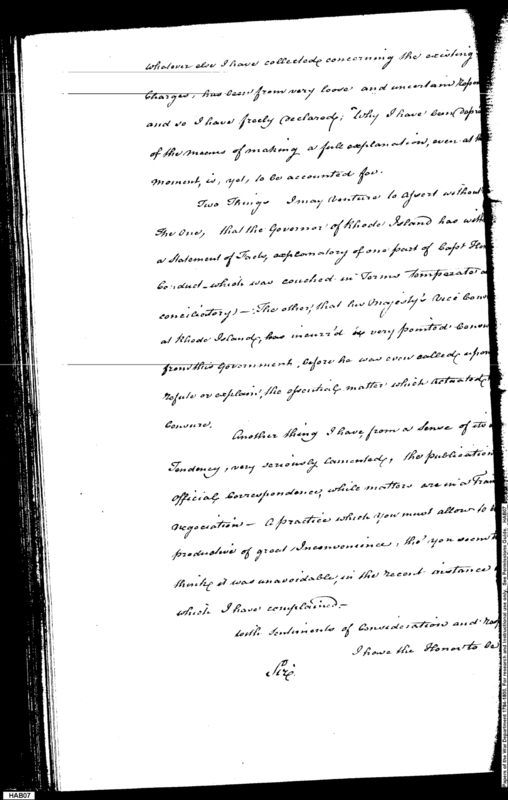 whatever else I have collected, concerning the existing
Charges, has been from very loose and uncertain
and so I have freely declared; Why I have been
of the means of making a full explanation, even at
Moment, is, yet, to be accounted for.
Two Things I may venture to assert without
The One, that the Governor of Rhode Island has
a Statement of Facts, explanatory of one part of Capt
Conduct – which was couched in Terms temperate
conciliatory – The other, that his Majesty's Vice
at Rhode Island, has incurr'd a very pointed
from this Government, before he was even called, upon
refute or explain, the essential, matter which actuated
Censure.
Another thing I have, from a Sense of its
Tendency, very seriously lamented, the publication
Official Correspondence, while matters are in a
Negociation – A practice which you must allow to
productive of great Inconvenience, tho' you seem
think it was unavoidable, in the recent instance
which I have complained –
With Sentiments of Consideration and
I have the Honor to be
Sir
HAB07